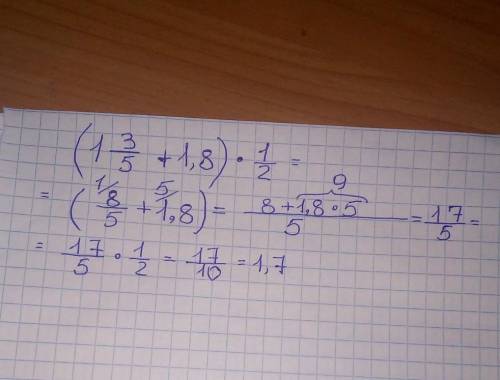 (1 3/5 + 1,8) · 1/2 =
= (1/ 8/5 + 5/ 1,8) = (8 + 1,8 · 5)/5 = 17/5 =
9
= 17/5 · 1/2 = 17/10 = 1,7